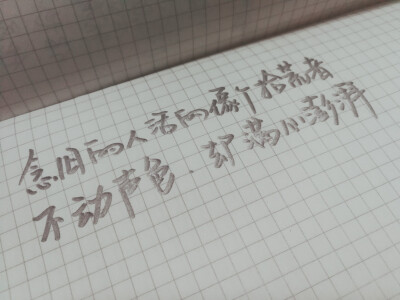 念旧的人活的像个拾荒者
不动声色.却满心澎湃